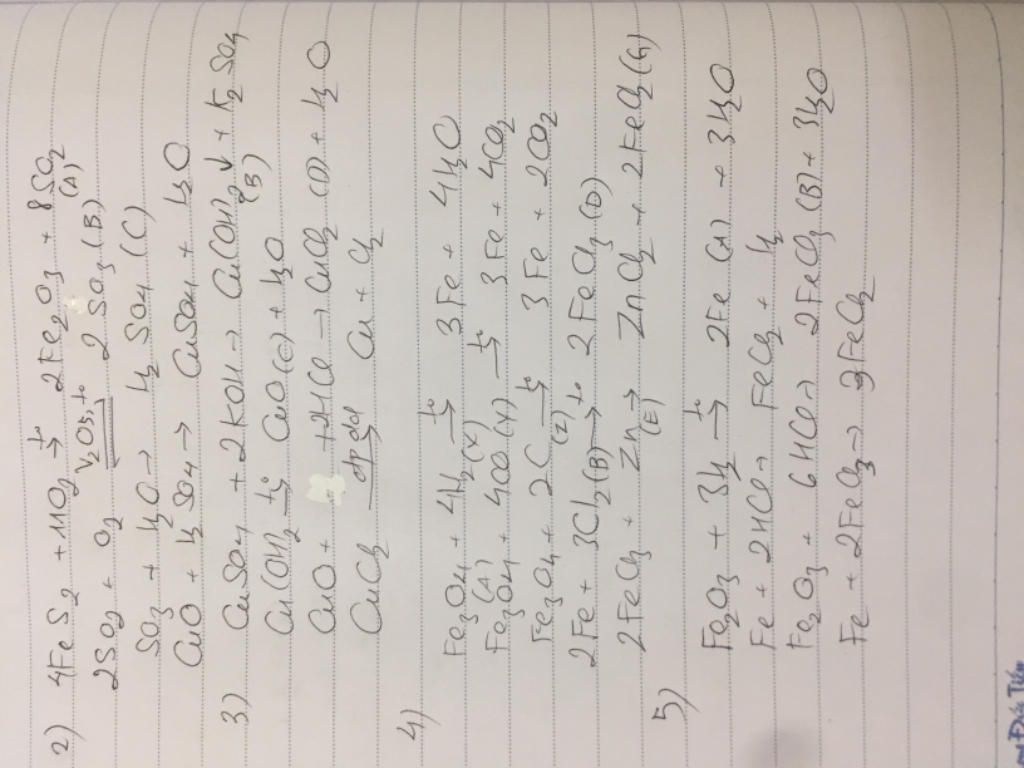 2) 4FeS₂ + 11O₂ →t° 2Fe₂O₃ + 8SO₂ (A)
2SO₂ + O₂ V₂O₅, t° 2SO₃ (B)
SO₃ + H₂O → H₂SO₄ (C)
CuO + H₂SO₄ → CuSO₄ + H₂O
3) CuSO₄ + 2KOH → Cu(OH)₂↓ (B) + K₂SO₄
Cu(OH)₂ →t° CuO (C) + H₂O
CuO + 2HCl → CuCl₂ (D) + H₂O
CuCl₂ →đpdd Cu + Cl₂
4)
Fe₃O₄ + 4H₂ (X) →t° 3Fe + 4H₂O
Fe₃O₄ (A) + 4CO (Y) →t° 3Fe + 4CO₂
Fe₃O₄ + 2C (Z) →t° 3Fe + 2CO₂
2Fe + 3Cl₂ (B) →t° 2FeCl₃ (D)
2FeCl₃ + Zn (E) → ZnCl₂ + 2FeCl₂ (G)
5)
Fe₂O₃ + 3H₂ →t° 2Fe (A) + 3H₂O
Fe + 2HCl → FeCl₂ + H₂
Fe₂O₃ + 6HCl → 2FeCl₃ (B) + 3H₂O
Fe + 2FeCl₃ → 3FeCl₂
Tiến